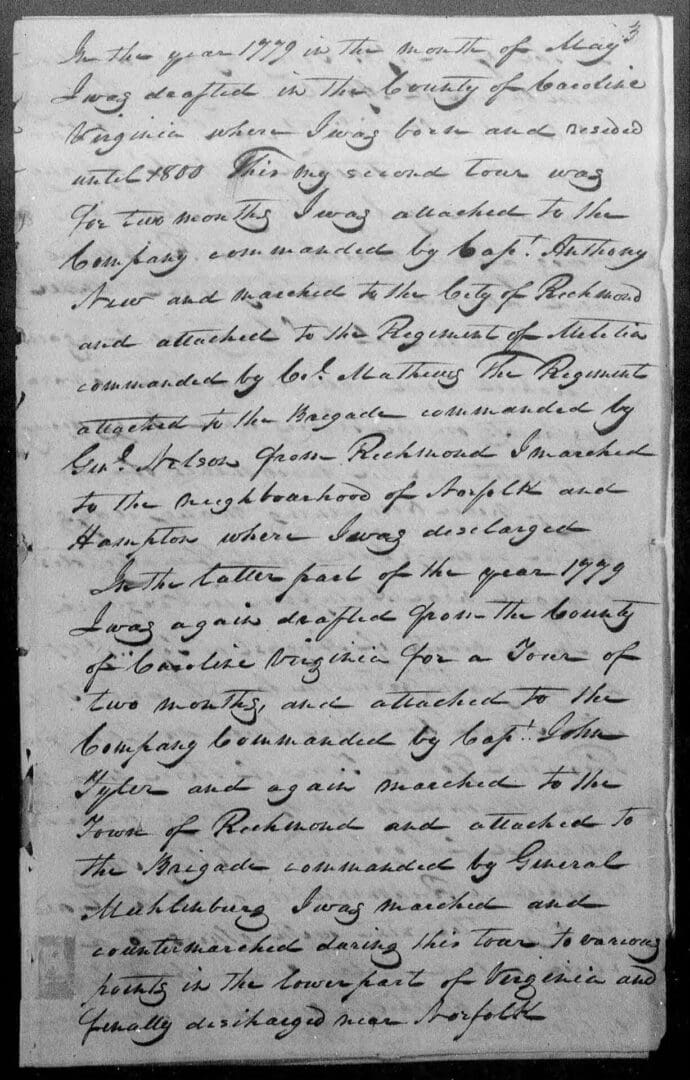 3
In the year 1779 in the month of May
I was drafted in the County of Caroline
Virginia where I was born and resided
until 1800 This my second tour was
for two months I was attached to the
Company commanded by Capt. Anthony
New and marched to the City of Richmond
and attached to the Regiment of Militia
commanded by Col. Mathews The Regiment
attached to the Brigade commanded by
Genl. Nelson from Richmond I marched
to the neighbourhood of Norfolk and
Hampton where I was discharged
In the latter part of the year 1779
I was again drafted from the County
of Caroline Virginia for a Tour of
two months, and attached to the
Company Commanded by Capt. John
Tyler and again marched to the
Town of Richmond and attached to
the Brigade commanded by General
Muhlenburg I was marched and
countermarched during this tour to various
points in the lower part of Virginia and
finally discharged near Norfolk